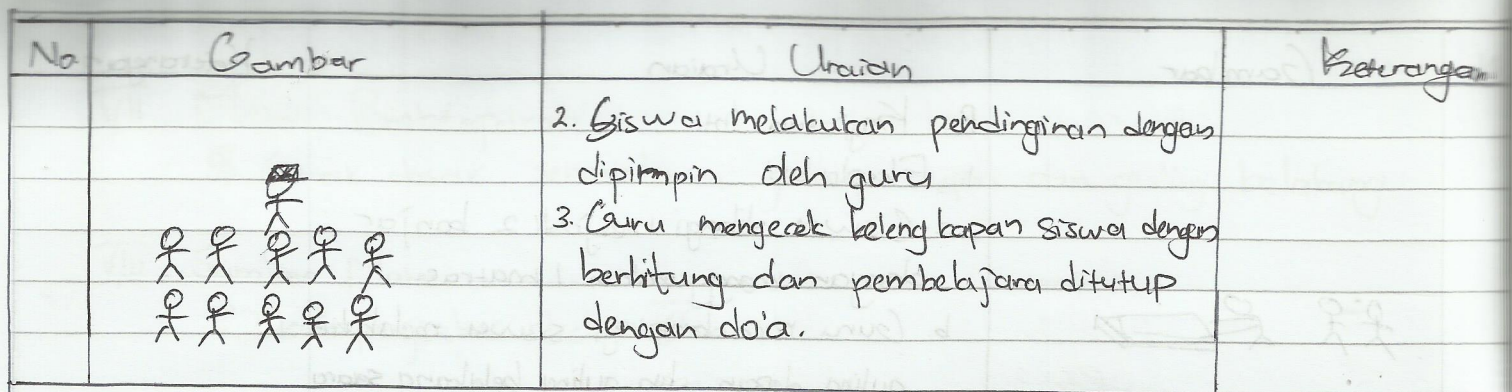 No Gambar Uraian Keterangan
2. Siswa melakukan pendinginan dengan
dipimpin oleh guru
3. Guru mengecek kelengkapan siswa dengan
berhitung dan pembelajara ditutup
dengan do'a.